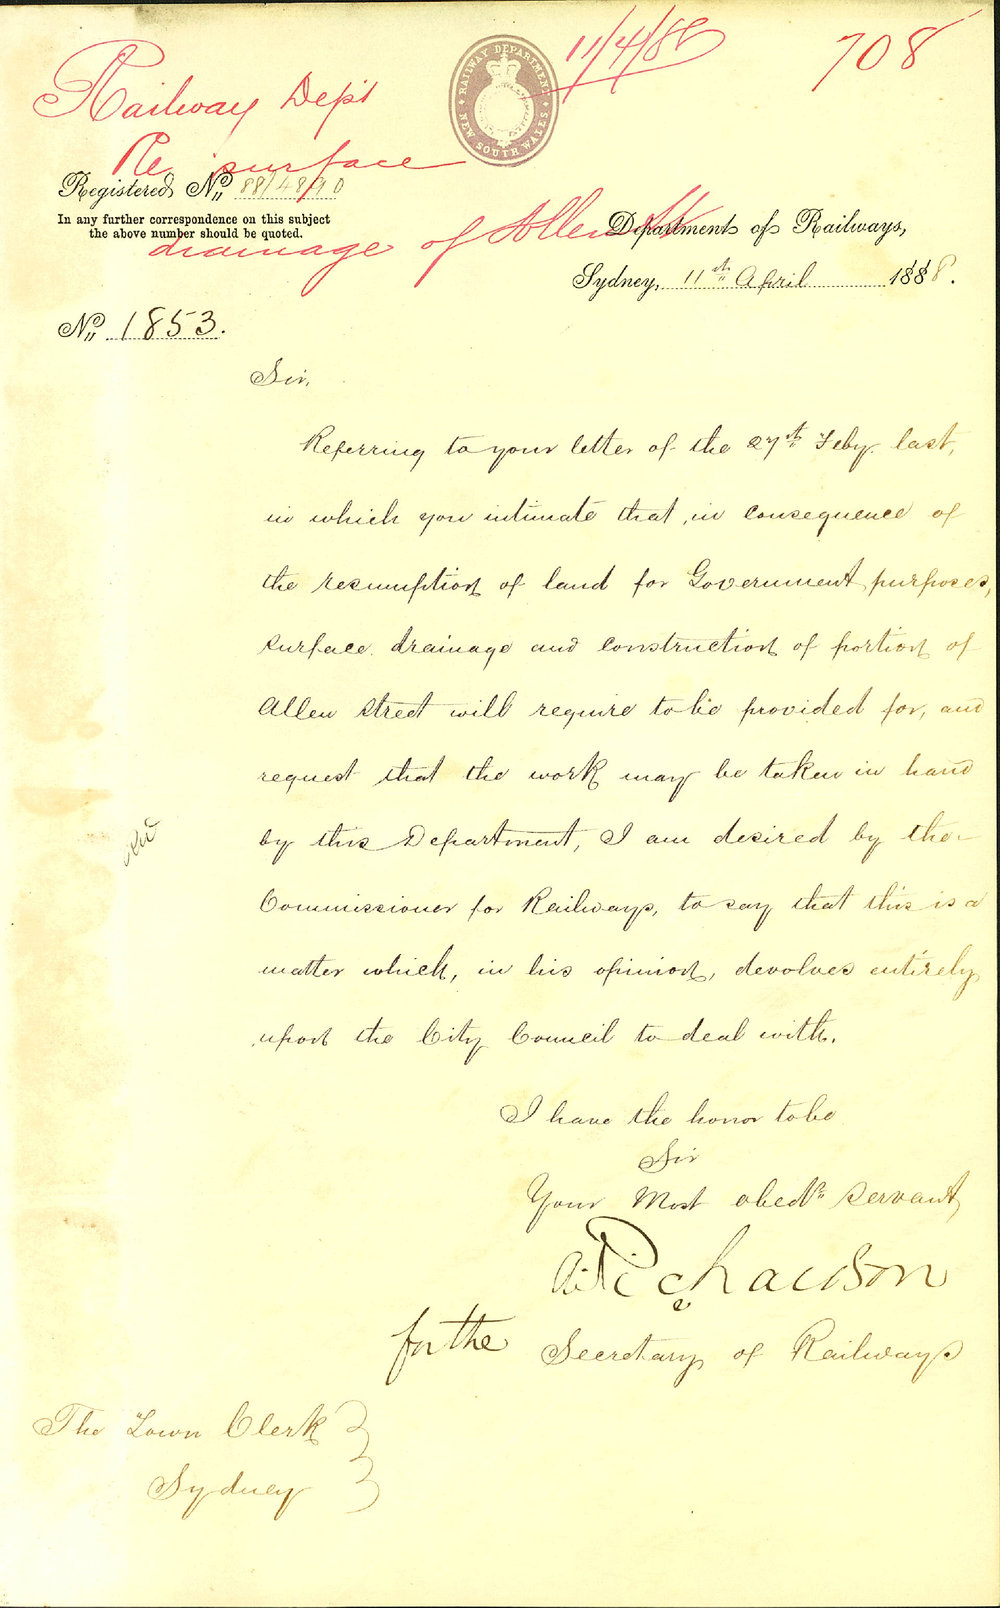 11/4/88
708
Railway Dept
Re surface
drainage of Allen St
RAILWAY DEPARTMENT
NEW SOUTH WALES
Registered No. 88/4890
In any further correspondence on this subject
the above number should be quoted.
Department of Railways,
Sydney, 11th April 1888.
No. 1853.
Sir,
Referring to your letter of the 27th Feby. last,
in which you intimate that, in consequence of
the resumption of land for Government purposes,
surface drainage and construction of portion of
Allen Street will require to be provided for, and
request that the work may be taken in hand
by this Department, I am desired by the
Commissioner for Railways, to say that this is a
matter which, in his opinion, devolves entirely
upon the City Council to deal with.
I have the honor to be
Sir
Your Most obedt. servant,
Richardson
for the Secretary of Railways
The Town Clerk
Sydney